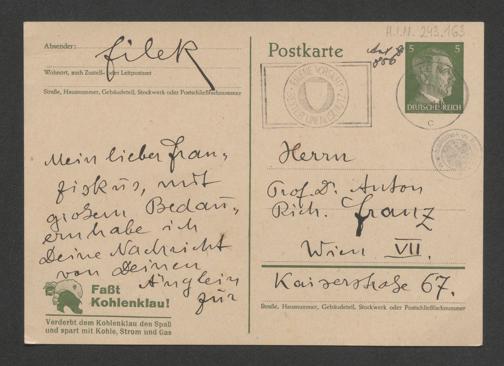 H.I.N. 243.163
Absender: Filek
Wohnort, auch Zustell- oder Leitpostamt
Straße, Hausnummer, Gebäudeteil, Stockwerk oder Postschließfachnummer
Mein lieber Fran,
ziskus, mit
großem Bedau,
ern habe ich
Deine Nachricht
von Deinen
Äuglein
zur
Faßt
Kohlenklau!
Verderbt dem Kohlenklau den Spaß
und spart mit Kohle, Strom und Gas
Postkarte
5 5
DEUTSCHES REICH
c
Herrn
Prof. Dr. Anton
Rich. Franz
Wien VII.
Kaiserstraße 67.
Straße, Hausnummer, Gebäudeteil, Stockwerk oder Postschließfachnummer